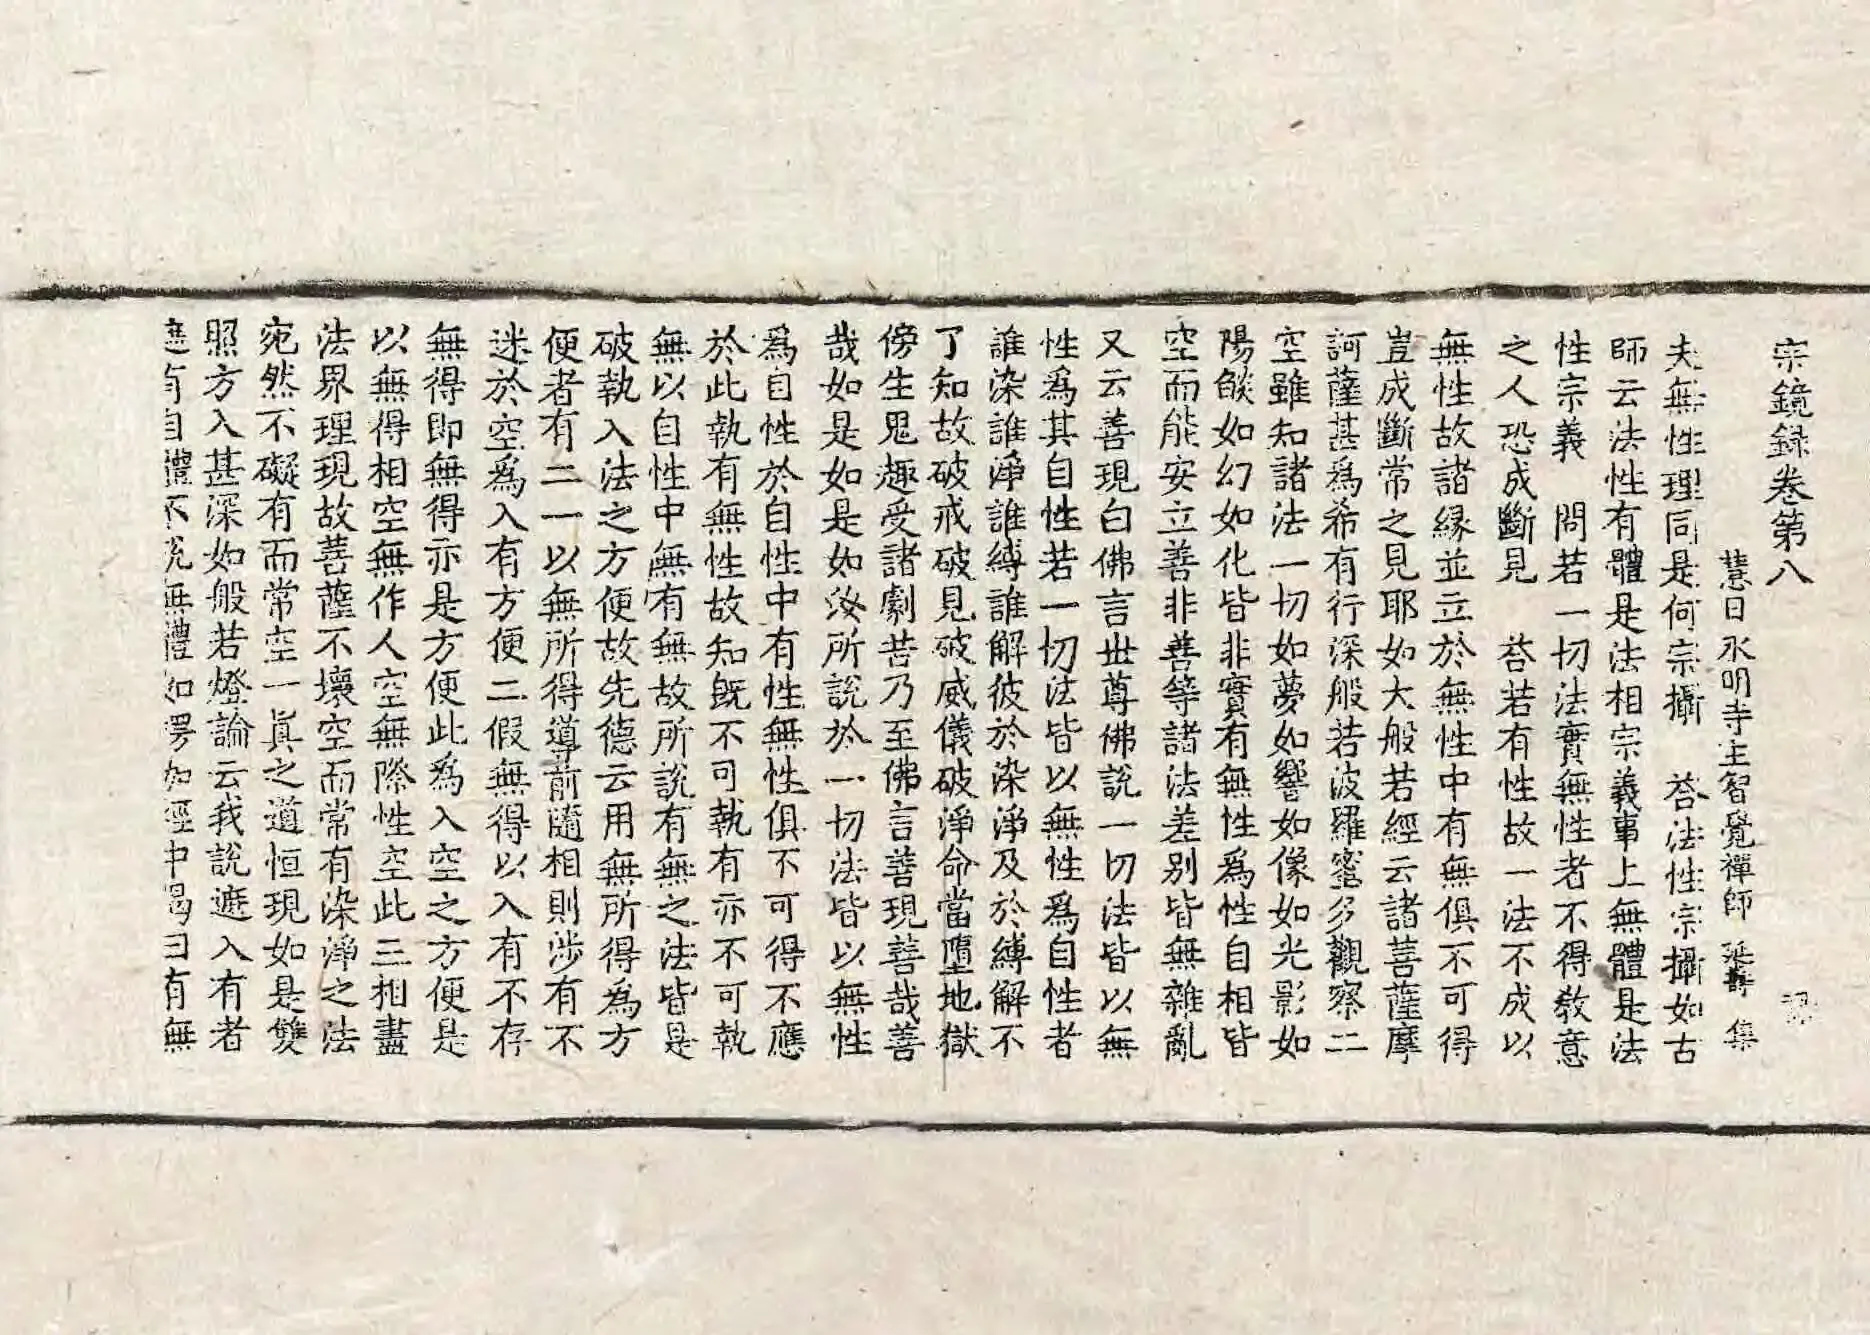 宗鏡録卷第八
慧日永明寺主智覺禪師 延壽 集
夫無性理同是何宗攝 荅法性宗攝如古
師云法性有體是法相宗義事上無體是法
性宗義 問若一切法實無性者不得教意
之人恐成斷見 荅若有性故一法不成以
無性故諸緣並立於無性中有無俱不可得
豈成斷常之見耶如大般若經云諸菩薩摩
訶薩甚爲希有行深般若波羅蜜多觀察二
空雖知諸法一切如夢如響如像如光影如
陽焰如幻如化皆非實有無性爲性自相皆
空而能安立善非善等諸法差别皆無雜亂
又云善現白佛言世尊佛說一切法皆以無
性爲其自性若一切法皆以無性爲自性者
誰染誰淨誰縛誰解彼於染淨及於縛解不
了知故破戒破見破威儀破淨命當墮地獄
傍生鬼趣受諸劇苦乃至佛言善現善哉善
哉如是如是如汝所說於一切法皆以無性
爲自性於自性中有性無性俱不可得不應
於此執有無性故知既不可執有亦不可執
無以自性中無有無故所說有無之法皆是
破執入法之方便故先德云用無所得爲方
便者有二一以無所得導前隨相則涉有不
迷於空爲入有方便二假無得以入有不存
無得即無得亦是方便此爲入空之方便是
以無得相空無作人空無際性空此三相盡
法界理現故菩薩不壞空而常有染淨之法
宛然不礙有而常空一真之道恒現如是雙
照方入甚深如般若燈論云我說遮入有者
遮有自體不說無體如楞伽經中偈曰有無